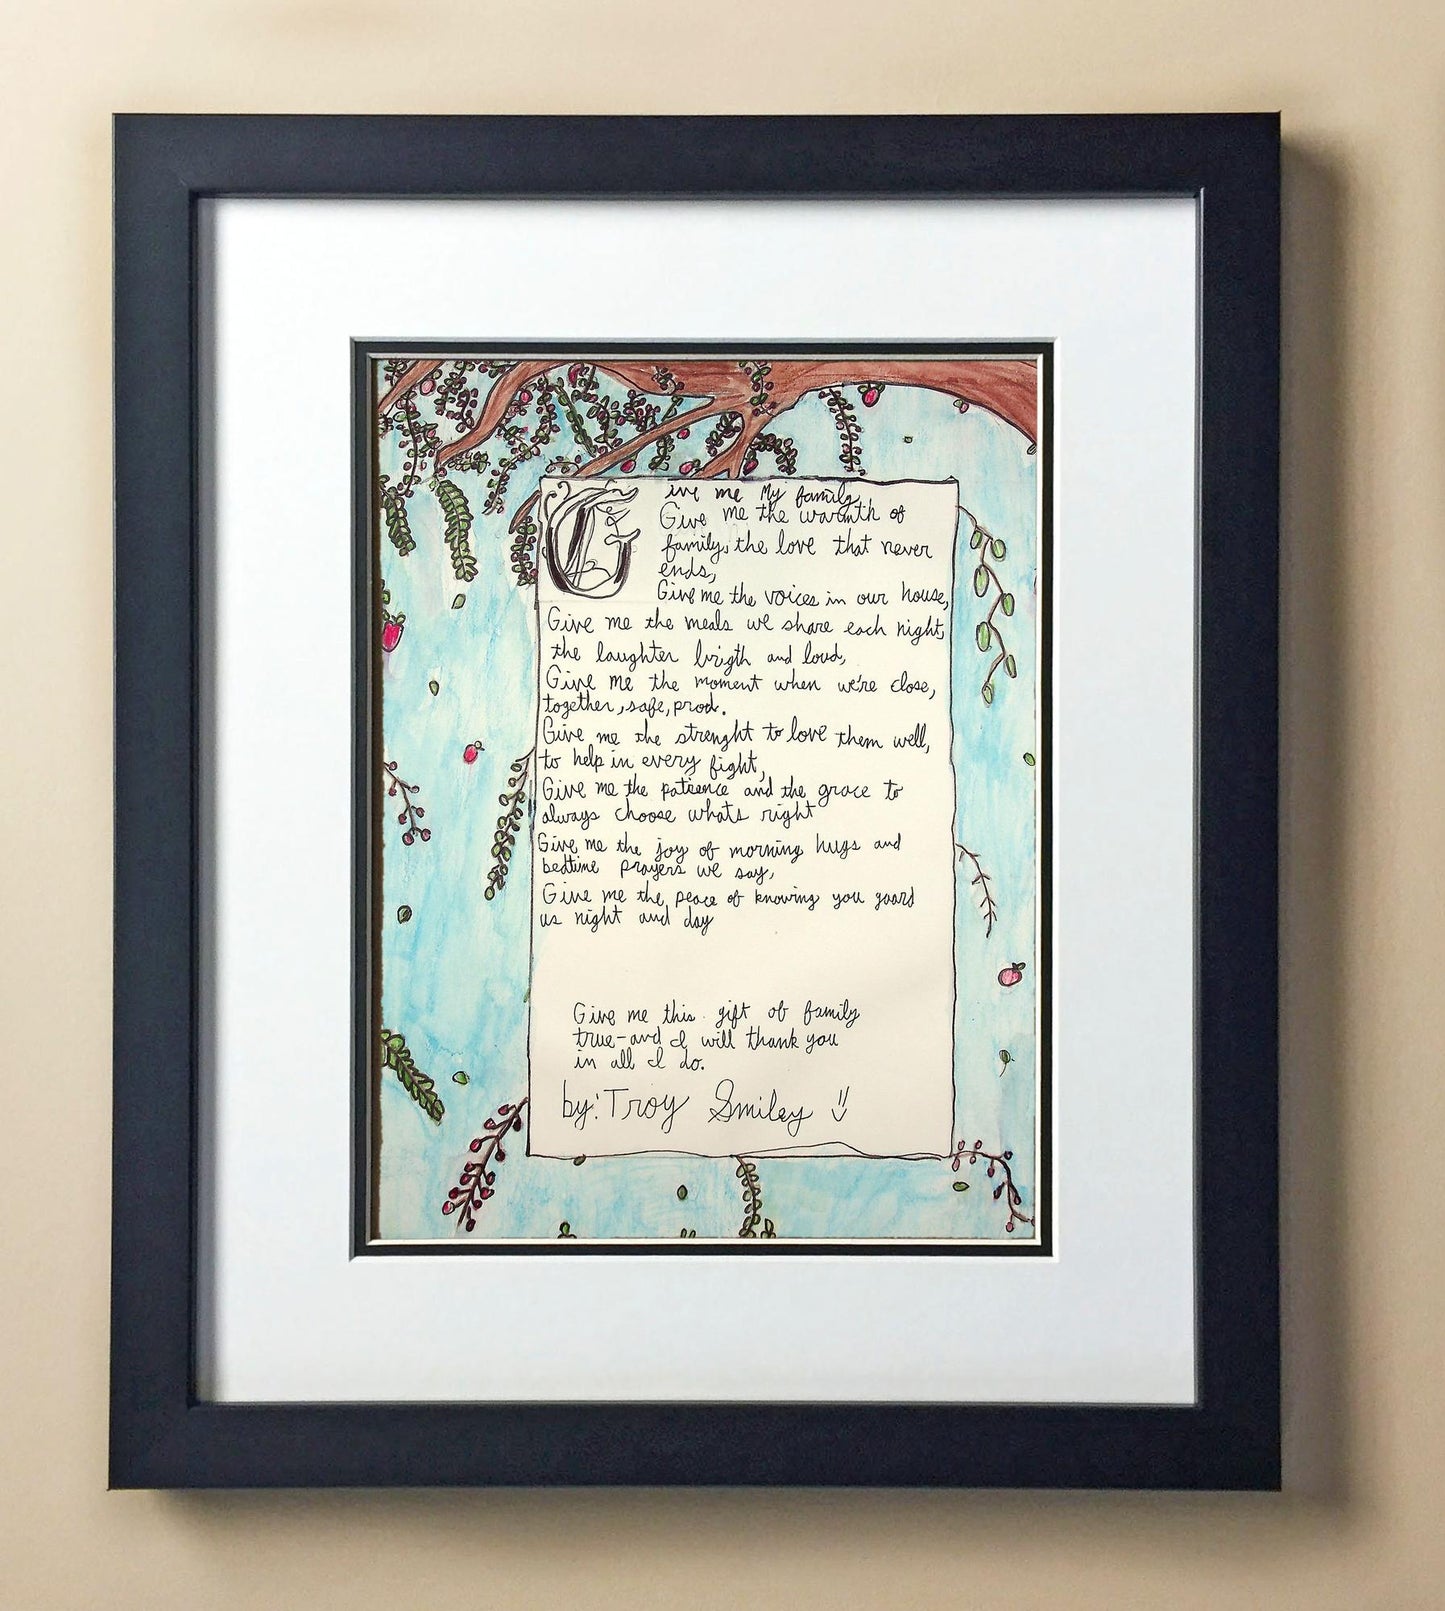 Give me My family,
Give me the warmth of
family, the love that never
ends,
Give me the voices in our house,
Give me the meals we share each night,
the laughter brigth and loud,
Give me the moment when we're close,
together, safe, prod.
Give me the strenght to love them well,
to help in every fight,
Give me the patience and the grace to
always choose whats right
Give me the joy of morning hugs and
bedtime prayers we say,
Give me the peace of knowing you guard
us night and day
Give me this gift of family
true-and I will thank you
in all I do.
by: Troy Smiley